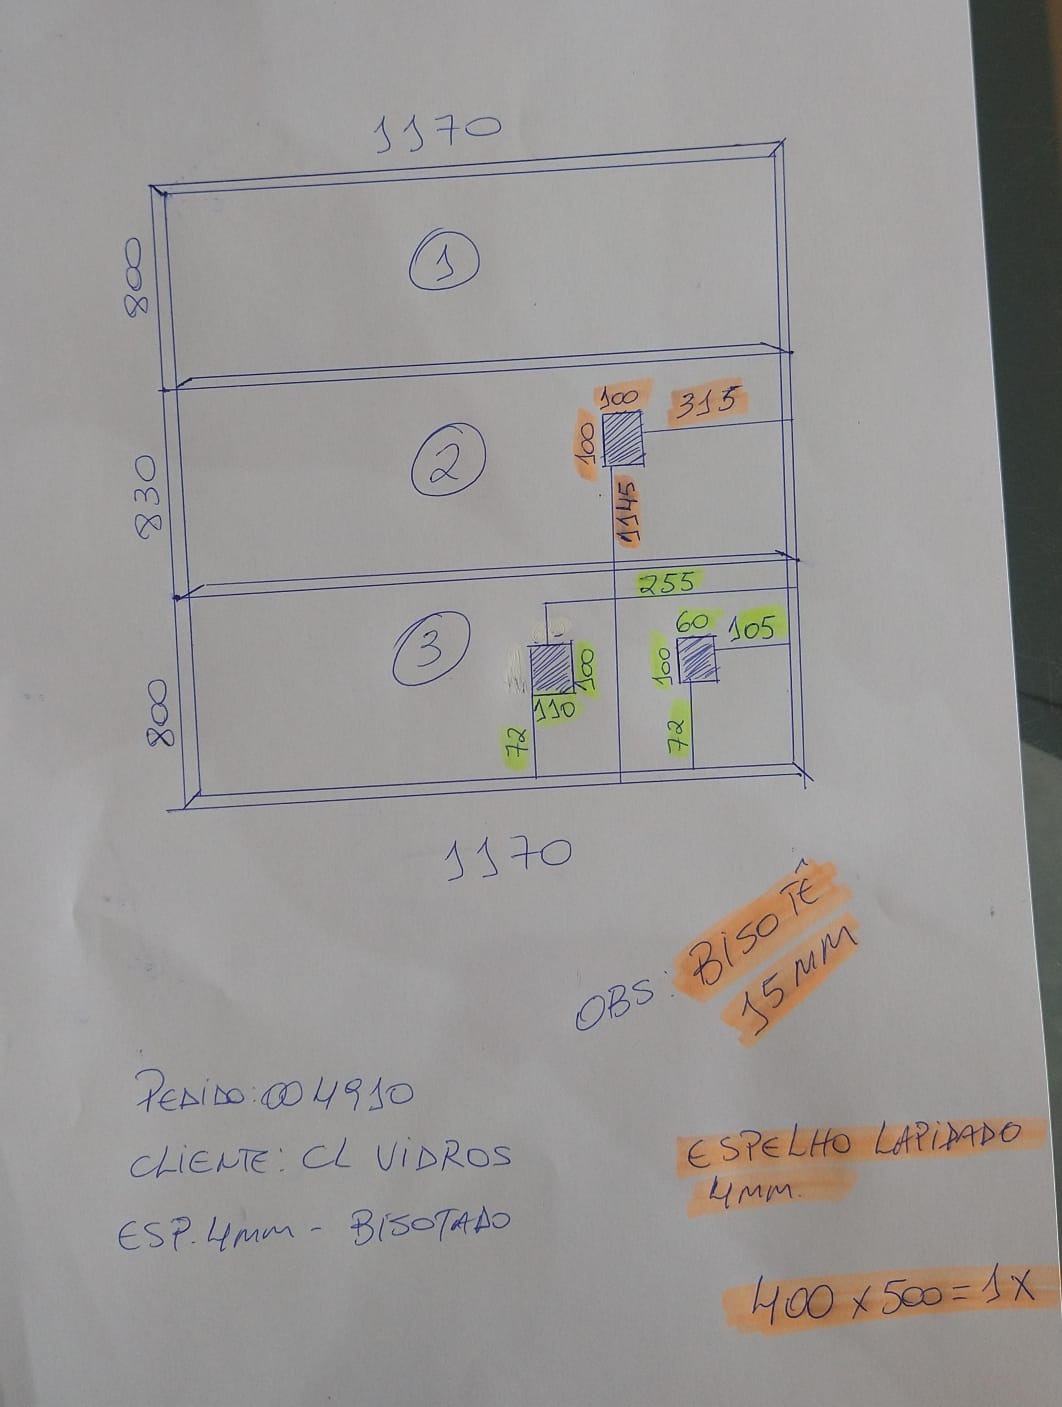 1170
800
1
100
315
100
2
830
1145
255
60
105
3
100
100
110
72
72
800
1170
OBS: BISOTÊ
15MM
PEDIDO: 004910
CLIENTE: CL VIDROS
ESP. 4MM - BISOTADO
ESPELHO LAPIDADO
4MM.
400 x 500 = 1X